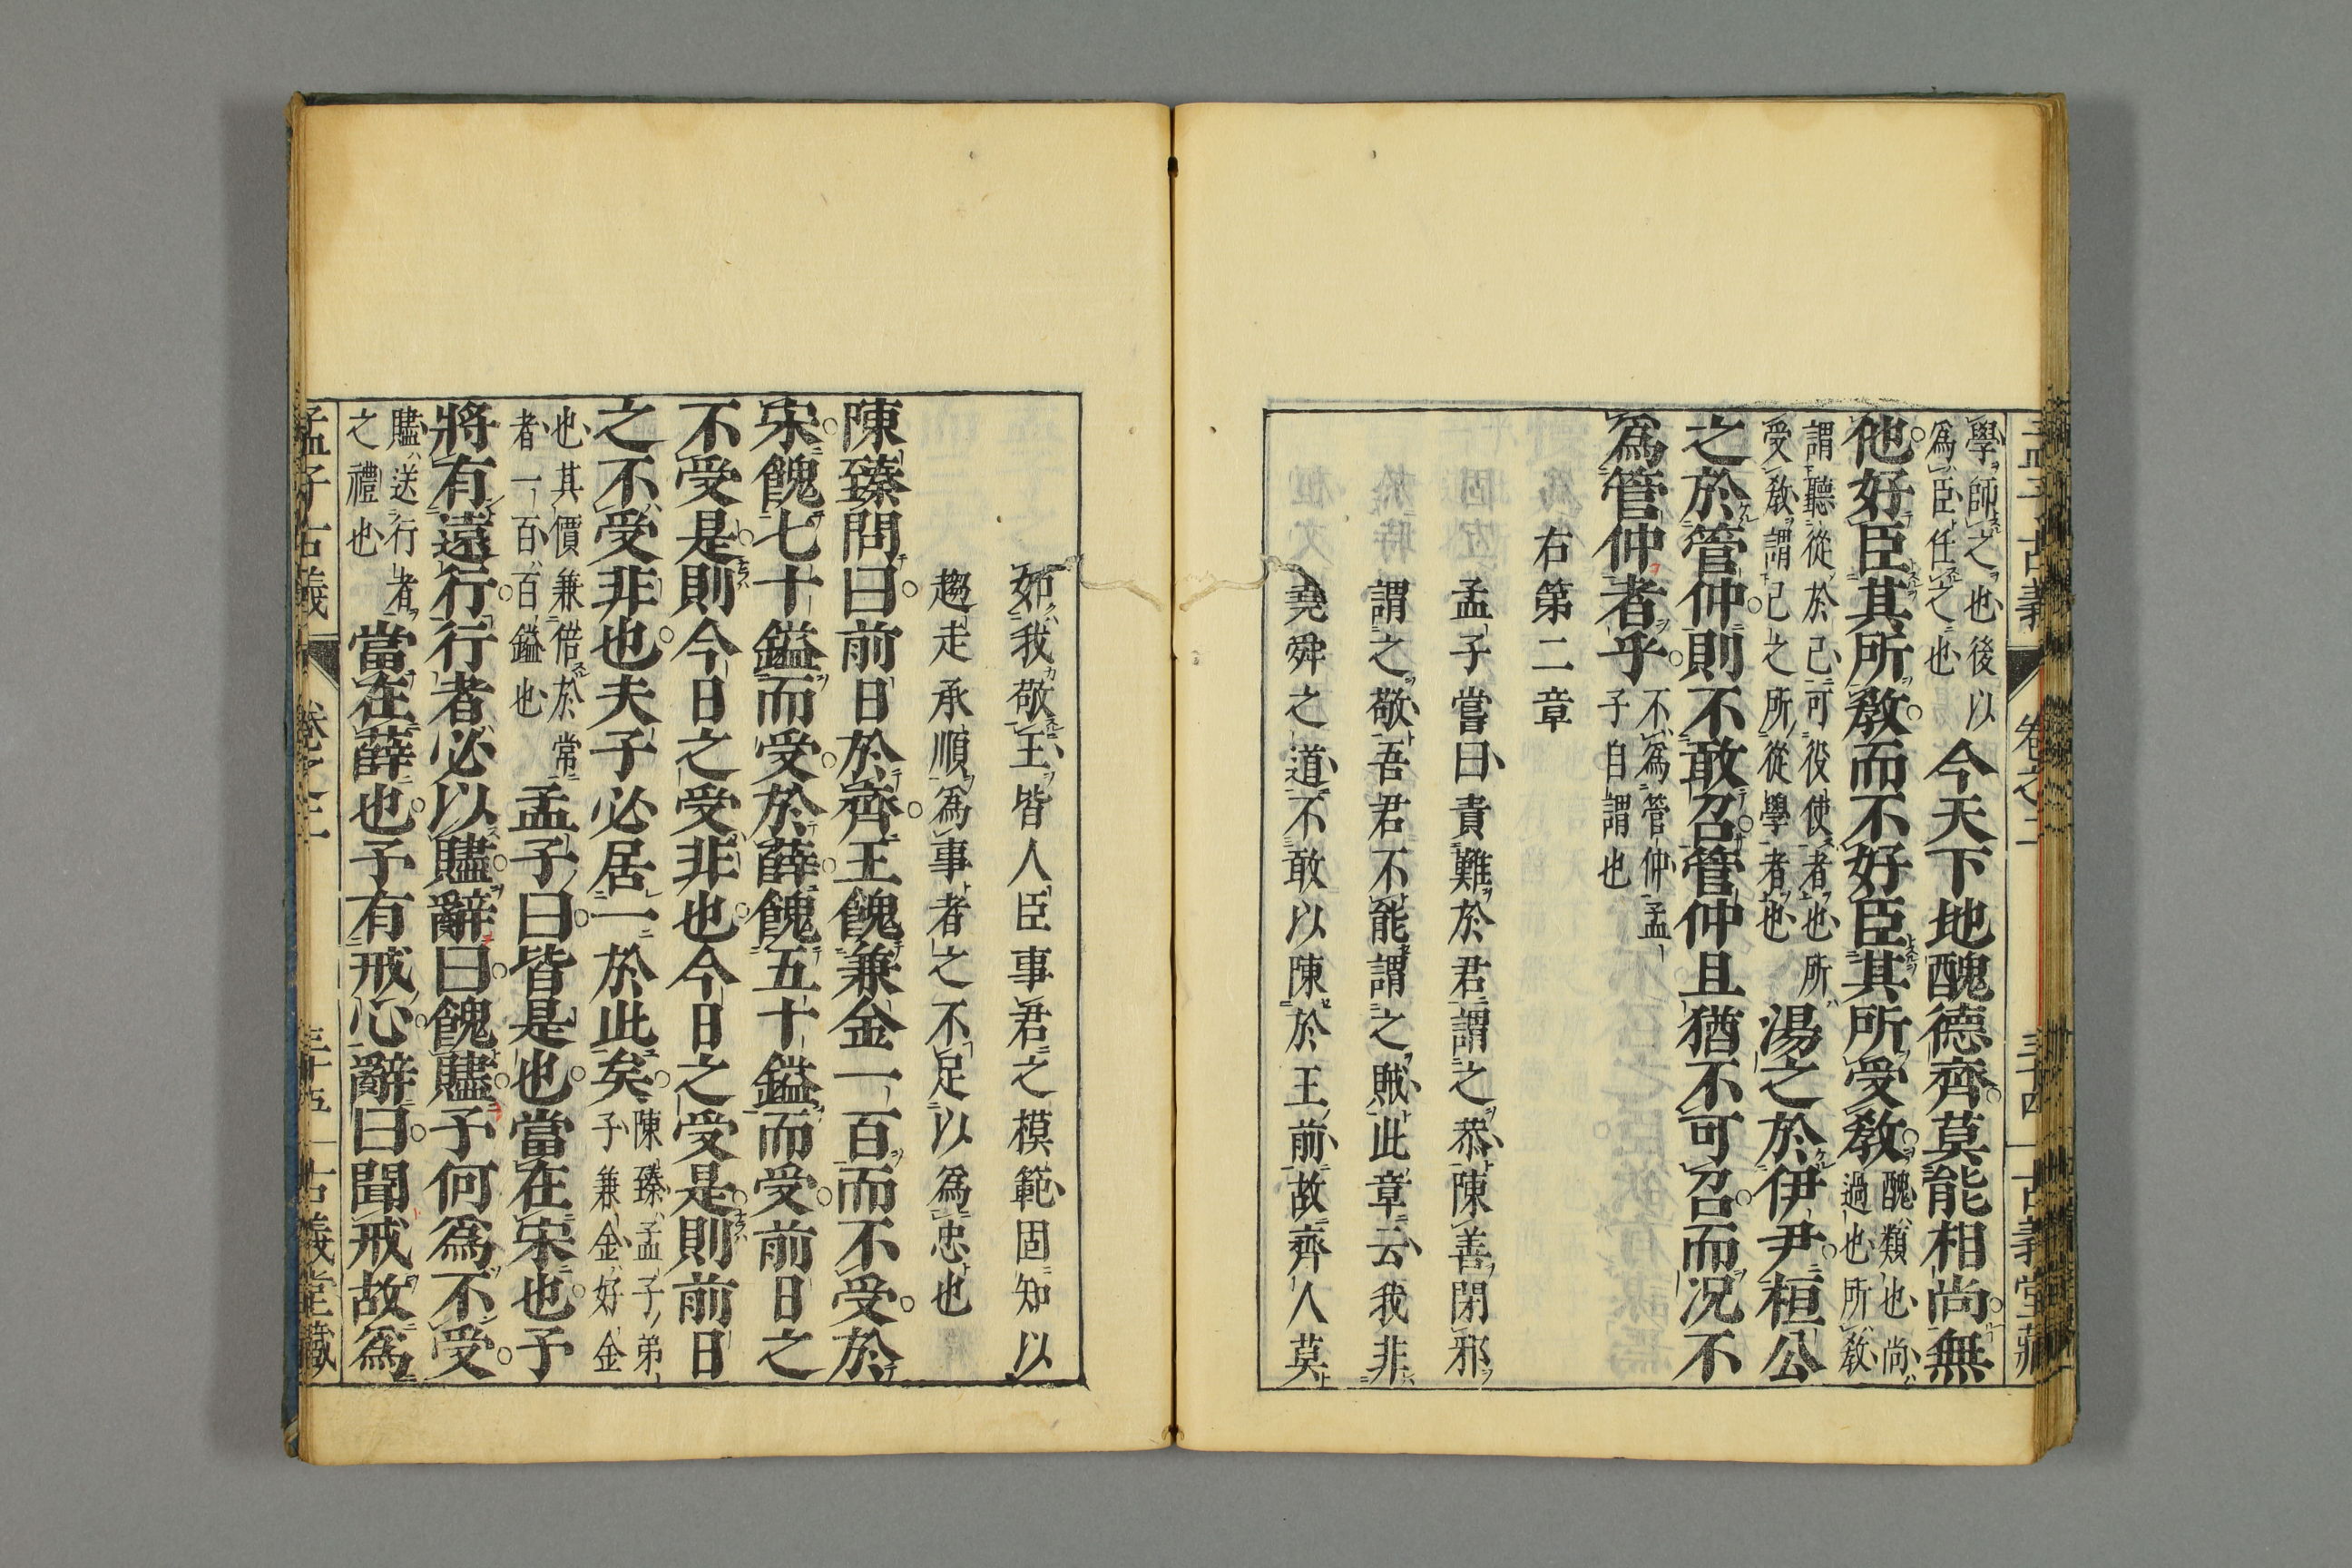 孟子古義 卷之二 三十四 古義堂藏
學師之也後以
爲臣任之也
今天下地醜德齊莫能相尚無
他好臣其所敎而不好臣其所受敎
醜類也尚
過也所敎
謂聽從於己可役使者也所
受敎謂己之所從學者也
湯之於伊尹桓公
之於管仲則不敢召管仲且猶不可召而況不
爲管仲者乎
不爲管仲孟
子自謂也
右第二章
孟子嘗曰責難於君謂之恭陳善閉邪
謂之敬吾君不能謂之賊此章云我非
堯舜之道不敢以陳於王前故齊人莫
如我敬王皆人臣事君之模範固知以
趨走承順爲事者之不足以爲忠也
陳臻問曰前日於齊王餽兼金一百而不受於
宋餽七十鎰而受於薛餽五十鎰而受前日之
不受是則今日之受非也今日之受是則前日
之不受非也夫子必居一於此矣
陳臻孟子弟
子兼金好金
也其價兼倍於常
者一百百鎰也
孟子曰皆是也當在宋也予
將有遠行行者必以贐辭曰餽贐予何爲不受
贐送行者
之禮也
當在薛也予有戒心辭曰聞戒故爲
孟子古義 卷之二 三十五 古義堂藏